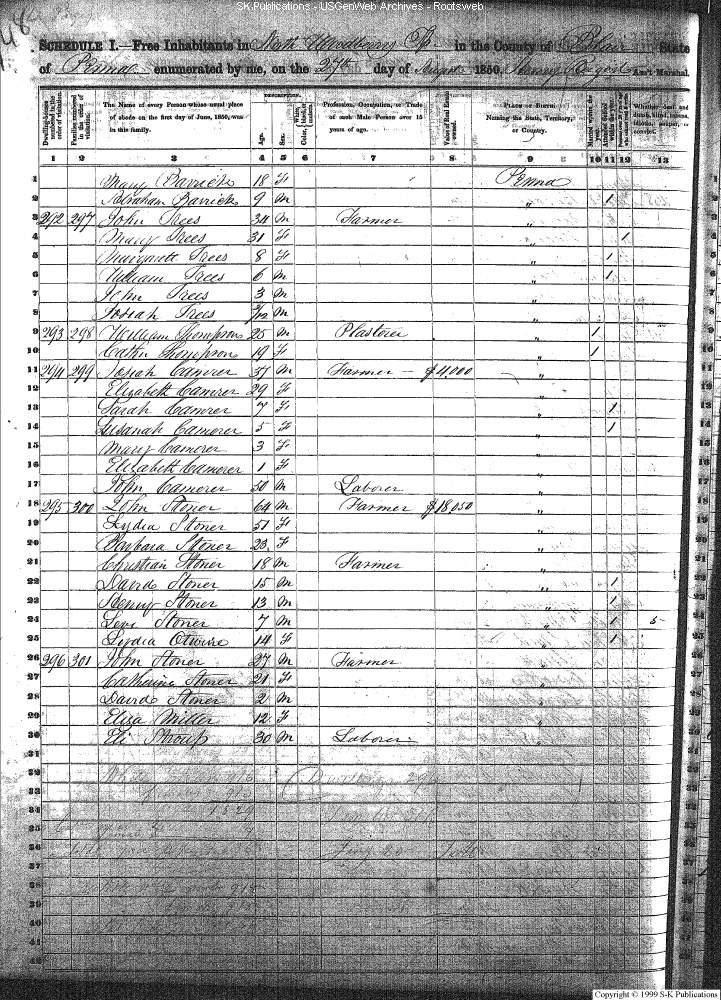 SK Publications - USGenWeb Archives - Rootsweb
SCHEDULE I.—Free Inhabitants in North Woodberry Tp in the County of Blair State
of Penna enumerated by me, on the 27th day of August 1850. Ass't Marshal.
Dwelling-houses numbered in the order of visitation.
Families numbered in the order of visitation.
The Name of every Person whose usual place of abode on the first day of June, 1850, was in this family.
DESCRIPTION.
Age.
Sex.
Color, White, black, or mulatto.
Profession, Occupation, or Trade of each Male Person over 15 years of age.
Value of Real Estate owned.
PLACE OF BIRTH.
Naming the State, Territory, or Country.
Married within the year.
Attended School within the year.
Whether deaf and dumb, blind, insane, idiotic, pauper, or convict.
1 2 3 4 5 6 7 8 9 10 11 12 13
1 Mary Barrick 18 F Penna
2 Abraham Barrick 9 M " 1
3 292 297 John Trees 34 M Farmer "
4 Mary Trees 31 F " 1
5 Margarett Trees 8 F " 1
6 William Trees 6 M " 1
7 John Trees 3 M "
8 Josiah Trees M "
9 293 298 William Thompson 25 M Plasterer " 1
10 Cathn Thompson 19 F " 1
11 294 299 Josiah Camerer 37 M Farmer — $4,000 "
12 Elizabeth Camerer 29 F "
13 Sarah Camerer 7 F " 1
14 Susanah Camerer 5 F " 1
15 Mary Camerer 3 F "
16 Elizabeth Camerer 1 F "
17 John Camerer 50 M Laborer "
18 295 300 John Stoner 64 M Farmer $18,050 "
19 Lydia Stoner 51 F "
20 Barbara Stoner 23 F "
21 Christian Stoner 18 M Farmer "
22 David Stoner 15 M " 1
23 Henry Stoner 13 M " 1
24 Levi Stoner 7 M " 1 5
25 Lydia 14 F " 1
26 296 301 John Stoner 27 M Farmer "
27 Catherine Stoner 21 F "
28 David Stoner 2 M "
29 Eliza Miller 12 F "
30 Eli Stroup 30 M Laborer "
31
32
33
34
35
36
37
38
39
40
41
42
Copyright © 1999 S-K Publications